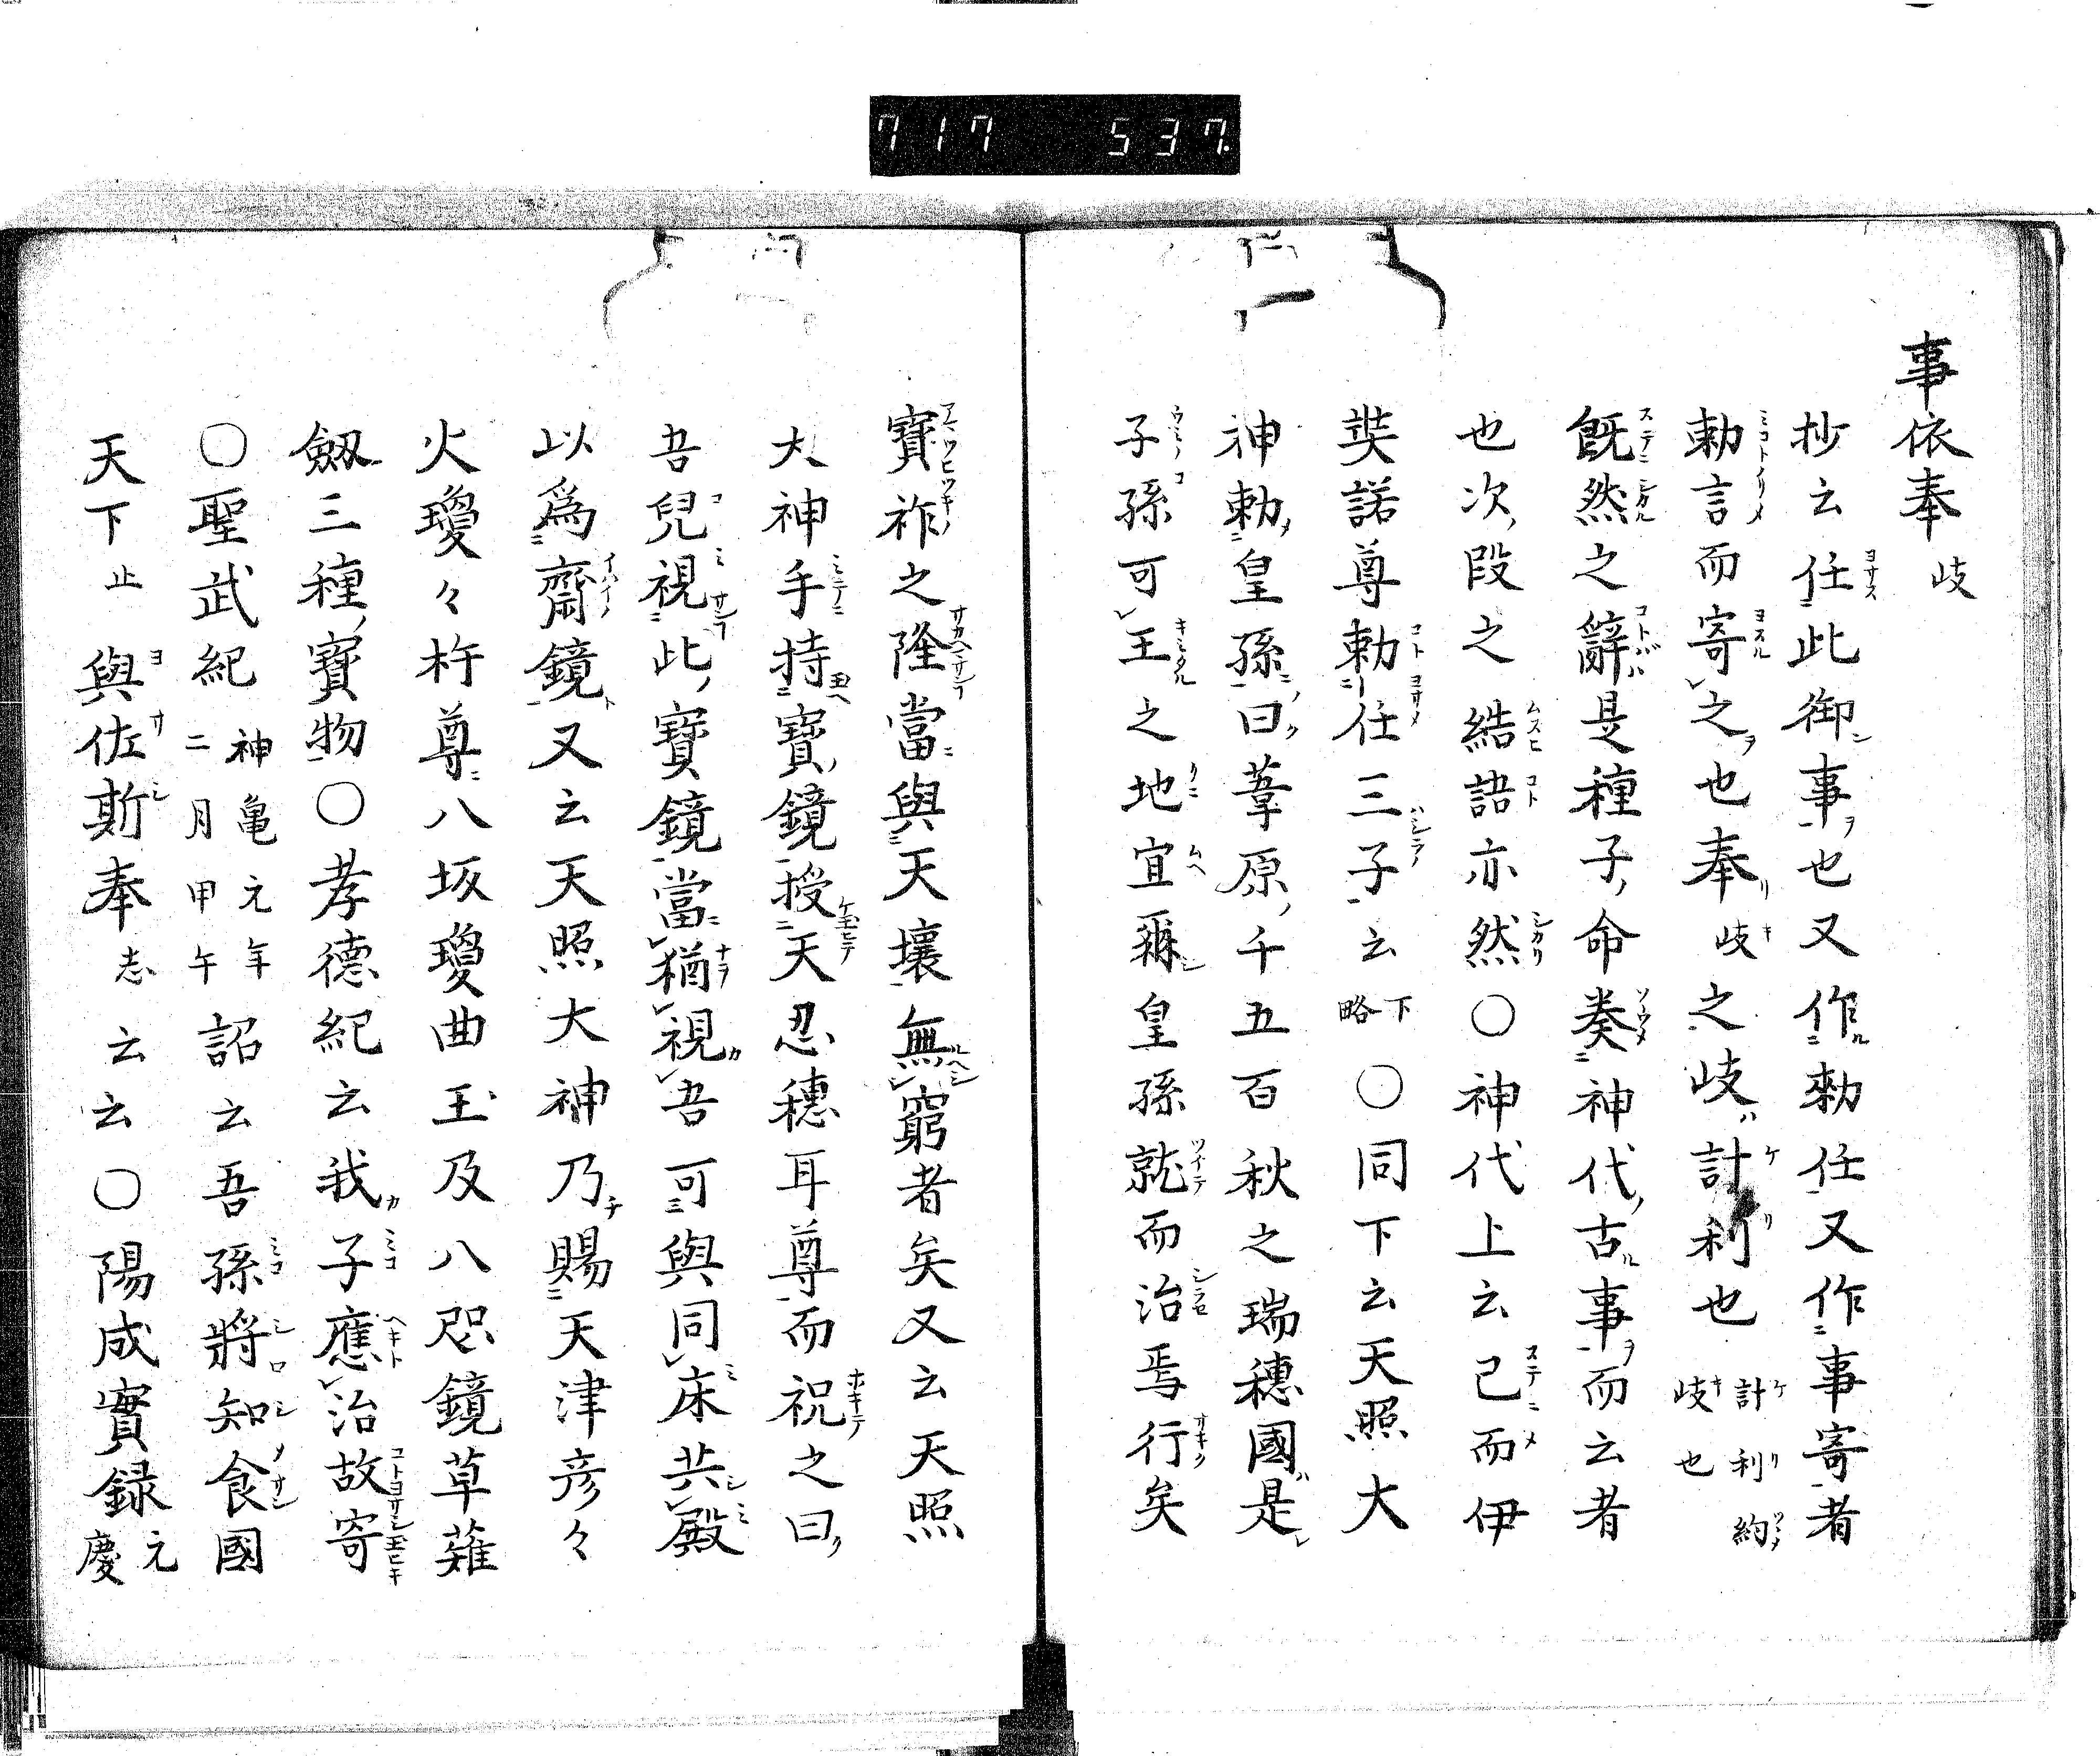 717 537.
事依奉岐
抄云任此御事也又作勅任又作事寄者
勅言而寄之也奉岐之岐計利也計利約岐也
既然之辭是種子命奏神代古事而云者
也次段之結語亦然○神代上云已而伊
弉諾尊勅任三子云下略○同下云天照大
神勅皇孫曰葦原千五百秋之瑞穗國是
子孫可王之地宜爾皇孫就而治焉行矣
寶祚之隆當與天壤無窮者矣又云天照
大神手持寶鏡授天忍穗耳尊而祝之曰
吾兒視此寶鏡當猶視吾可與同床共殿
以爲齋鏡又云天照大神乃賜天津彦々
火瓊々杵尊八坂瓊曲玉及八咫鏡草薙
劔三種寶物○孝德紀云我子應治故寄
○聖武紀神亀元年二月甲午詔云吾孫將知食國
天下止與佐斯奉志云云○陽成實録元慶